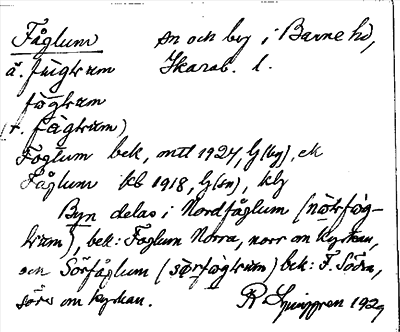 Fåglum sn och by i Barne hd,
ä. fùgɫɯm Skarab. l.
fògɫɯm
(r. fågɫɯm)
Foglum bek, mtl 1927, G(by), ek
Fåglum kb 1918, G(sn), kly
Byn delas i Nordfåglum (nòrfòg-
ɫɯm), bek: Foglum Norra, norr om kyrkan,
och Sörfåglum (sørfògɫɯm) bek: F. Södra,
sörs om kyrkan. R Ljunggren 1929